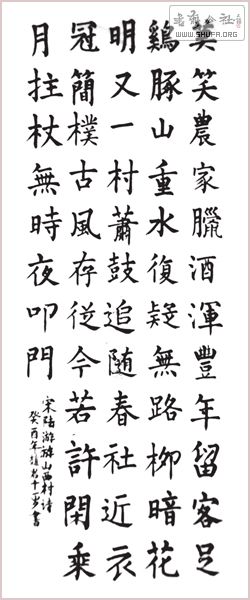 莫笑農家臘酒渾豐年留客足
鷄豚山重水復疑無路柳暗花
明又一村蕭鼓追随春社近衣
冠簡樸古風存從今若許閑乘
月拄杖無時夜叩門
宋陸游遊山西村詩
癸酉年十一岁書
WWW.SHUFA.ORG